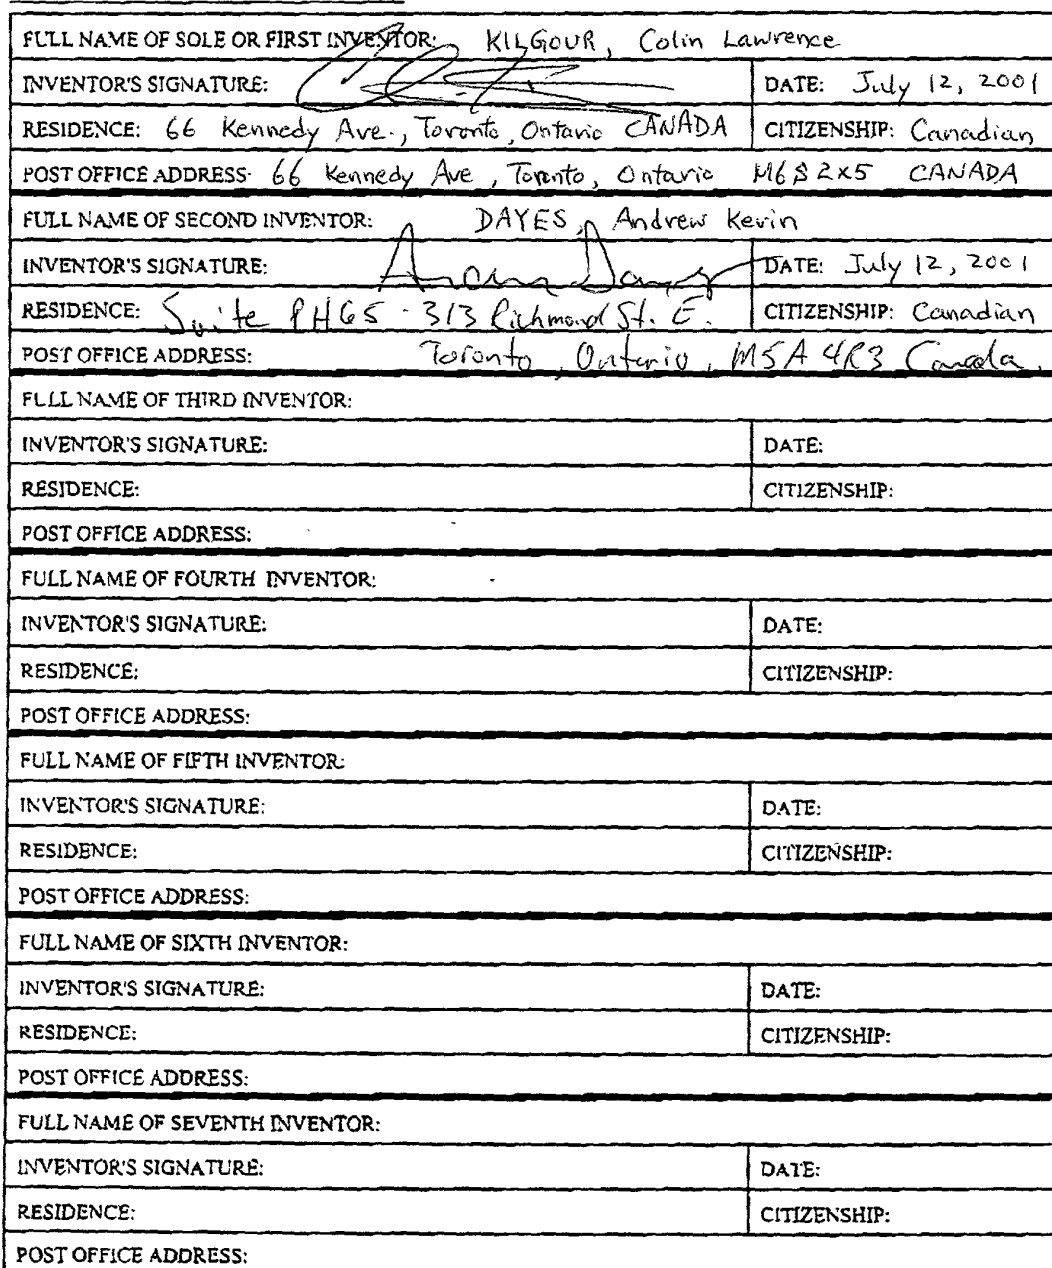 FULL NAME OF SOLE OR FIRST INVENTOR: KILGOUR, Colin Lawrence
INVENTOR'S SIGNATURE: DATE: July 12, 2001
RESIDENCE: 66 Kennedy Ave., Toronto, Ontario CANADA CITIZENSHIP: Canadian
POST OFFICE ADDRESS: 66 Kennedy Ave, Toronto, Ontario M6S 2X5 CANADA
FULL NAME OF SECOND INVENTOR: DAYES, Andrew Kevin
INVENTOR'S SIGNATURE: DATE: July 12, 2001
RESIDENCE: Suite PH65 - 313 Richmond St. E. CITIZENSHIP: Canadian
POST OFFICE ADDRESS: Toronto, Ontario, M5A 4R3 Canada.
FULL NAME OF THIRD INVENTOR:
INVENTOR'S SIGNATURE: DATE:
RESIDENCE: CITIZENSHIP:
POST OFFICE ADDRESS:
FULL NAME OF FOURTH INVENTOR:
INVENTOR'S SIGNATURE: DATE:
RESIDENCE: CITIZENSHIP:
POST OFFICE ADDRESS:
FULL NAME OF FIFTH INVENTOR:
INVENTOR'S SIGNATURE: DATE:
RESIDENCE: CITIZENSHIP:
POST OFFICE ADDRESS:
FULL NAME OF SIXTH INVENTOR:
INVENTOR'S SIGNATURE: DATE:
RESIDENCE: CITIZENSHIP:
POST OFFICE ADDRESS:
FULL NAME OF SEVENTH INVENTOR:
INVENTOR'S SIGNATURE: DATE:
RESIDENCE: CITIZENSHIP:
POST OFFICE ADDRESS: